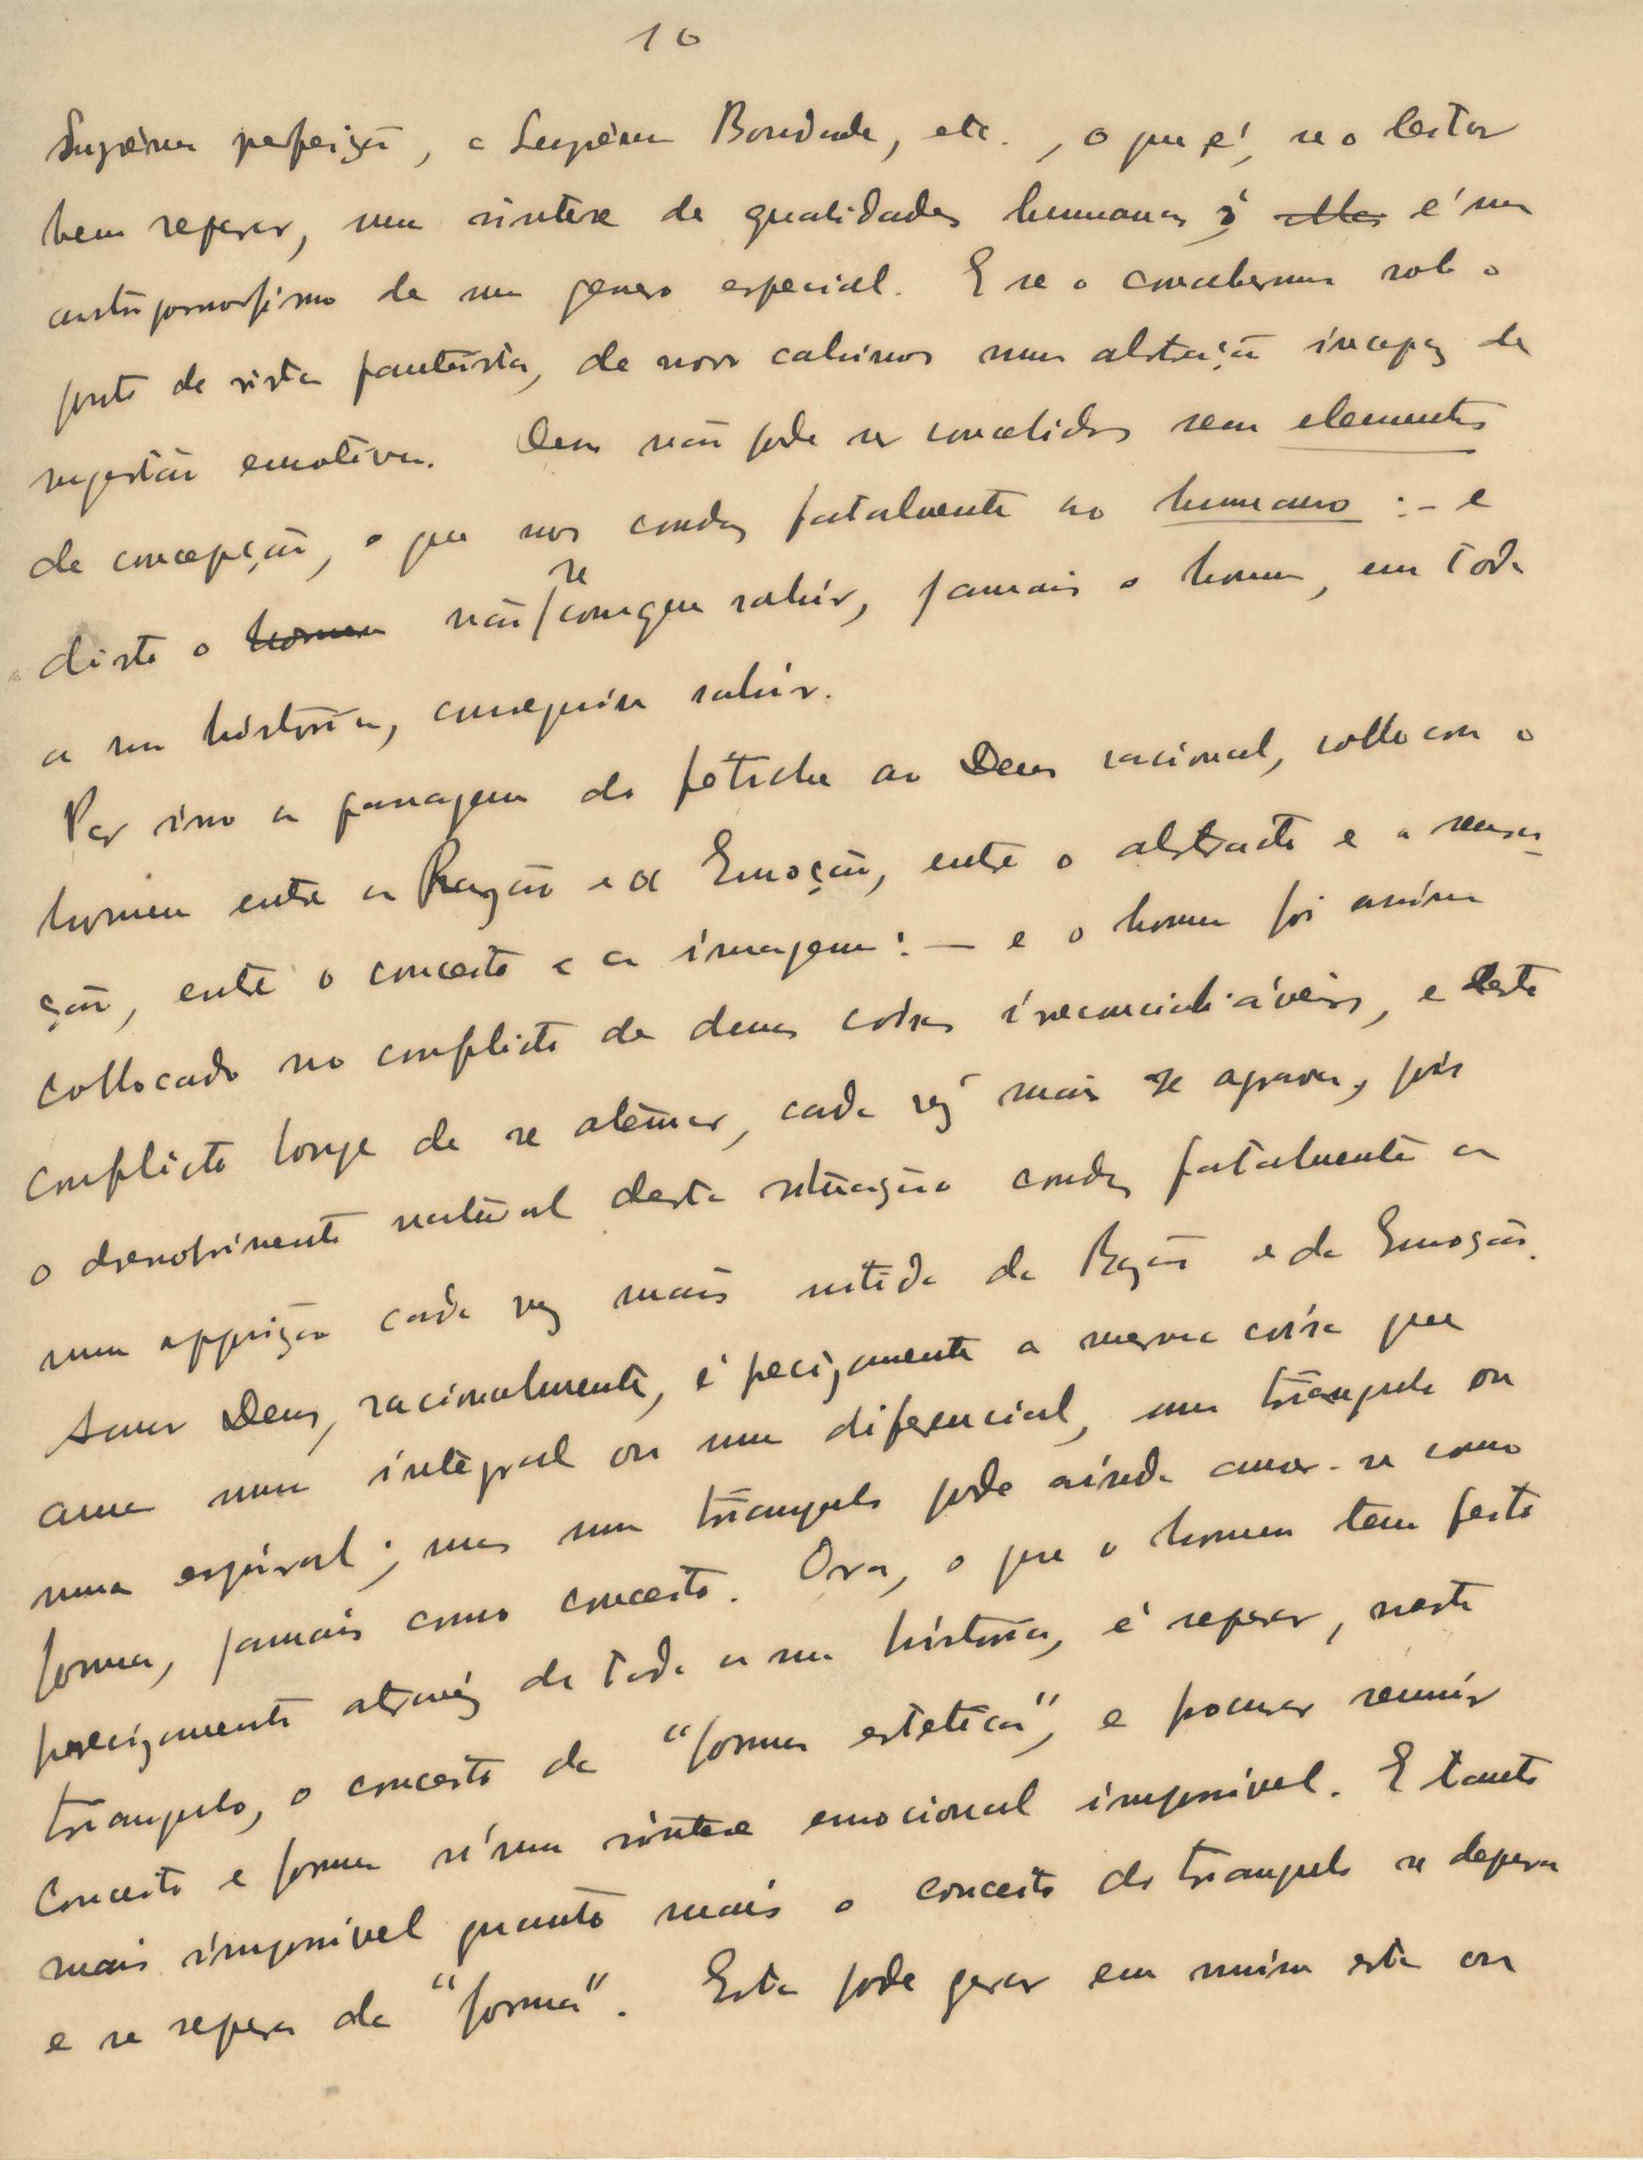 10
Suprema perfeição, a Suprema Bondade, etc., o que é, se o leitor
bem reparar, uma sintese de qualidades humanas, é um
antropomorfismo de um genero especial. E se o concebermos sob o
ponto de vista panteista, de novo cahimos numa abstração incapaz de
sugestão emotiva. Deus não pode ser concebido sem elementos
de concepção, o que nos conduz fatalmente ao humano : - e
disto o não se consegue sahir, jamais o homem, em toda
a sua historia, conseguiu sahir.
Por isso a passagem do fetiche ao Deus racional, collocou o
homem entre a Razão e a Emoção, entre o abstracto e a sensa-
ção, entre o conceito e a imagem : — e o homem foi assim
collocado no conflicto de duas coisas irreconciliáveis, e este
conflicto longe de se atenuar, cada vez mais se agrava, pois
o desenvolvimento natural desta situação conduz fatalmente a
uma opposição cada vez mais nitida da Razão e da Emoção.
Amar Deus, racionalmente, é precizamente a mesma coisa que
amar uma integral ou uma diferencial, um triangulo ou
uma espiral ; mas um triangulo pode ainda amar-se como
forma, jamais como conceito. Ora, o que o homem tem feito
precizamente atravéz de toda a sua historia, é separar, neste
triangulo, o conceito da "forma estetica", e procurar reunir
conceito e forma n'uma sintese emocional impossivel. E tanto
mais impossivel quanto mais o conceito do triangulo se depura
e se separa da "forma". Esta pode gerar em mim esta ou